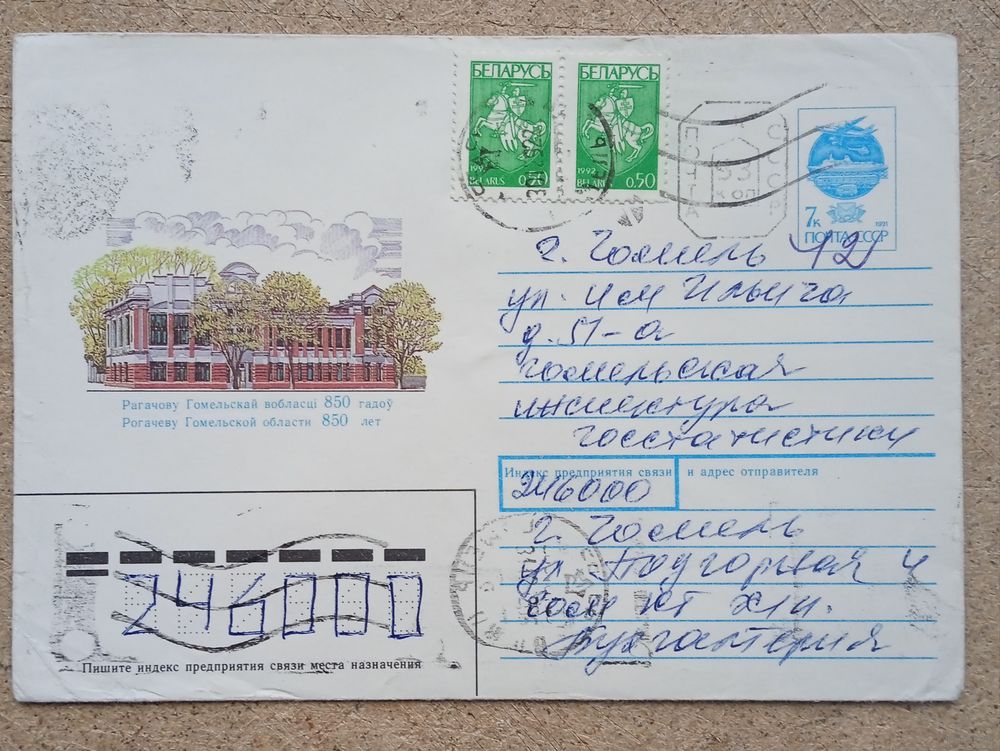 БЕЛАРУСЬ
1992
BELARUS 0.50
БЕЛАРУСЬ
1992
BELARUS 0.50
ПОЧТА
СССР
63
КОП
7к
1991
ПОЧТА СССР
г. Гомель 12
ул. им Ильича
д. 51-а
Гомельская
инспектура
госстатистики
Рагачову Гомельскай вобласці 850 гадоў
Рогачеву Гомельской области 850 лет
Индекс предприятия связи и адрес отправителя
246000
г. Гомель
ул Подгорная 4
Бухгалтерия
246000
Пишите индекс предприятия связи места назначения